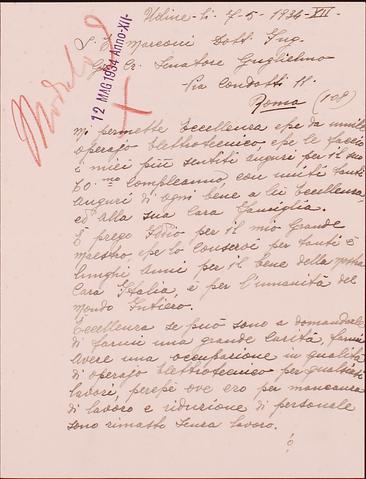 Udine - li - 7-5-1934-XII-
12 MAG 1934 Anno XII
S. E. Marconi Dott. Ing.
Gr. Co. Senatore Guglielmo
Via Condotti 11.
Roma (108)
Mi permetta Eccellenza, che da umile
operajo Elettrotecnico, che le faccio
i miei più sentiti auguri per il suo
60.mo compleanno con uniti tanti
auguri di ogni bene a lui Eccellenza
ed alla sua Cara Famiglia.
E prego Iddio per il mio grande
maestro, che lo conservi per tanti e
lunghi anni per il bene della nostra
Cara Italia, e per l'umanità del
Mondo Intiero.
Eccellenza se può sono a domandale
di farmi una grande Carità, farmi
avere una occupazione in qualità
di operajo Elettrotecnico per qualsiasi
lavori, perchè ove ero per mancanza
di lavoro e riduzione di personale
sono rimasto senza lavoro.